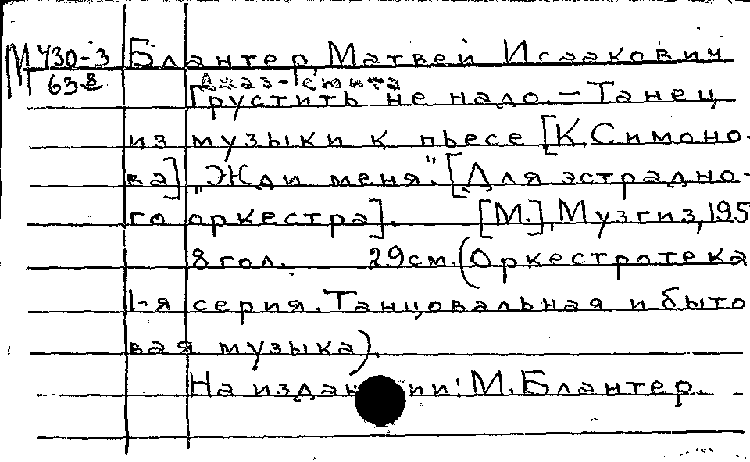 М 430-3 Блантер Матвей Исаакович
63-8
Грустить не надо. – Танец
из музыки к пьесе [К. Симоно-
ва] "Жди меня". [Для эстрадно-
го оркестра]. [М.], Музгиз, 195
8 гол. 29 см. (Оркестротека
1-я серия. Танцовальная и быто
вая музыка).
На издан ии: М. Блантер.